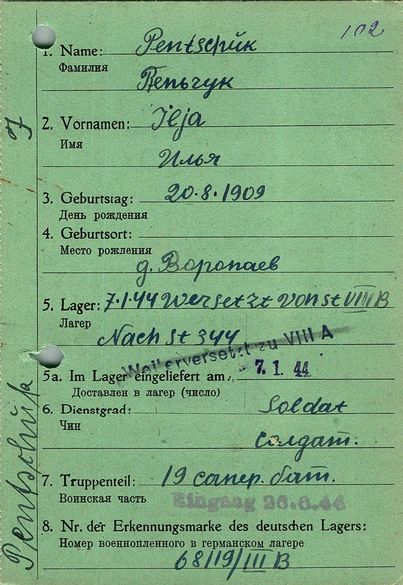 102
1. Name: Pentschuk
Фамилия Пеньчук
2. Vornamen: Ilja
Имя
Илья
3. Geburtstag: 20.8.1909
День рождения
4. Geburtsort:
Место рождения
д. Воропаев
5. Lager: 7.1.44 Wersetzt von St VIII B
Лагер
Nach St 344
Weiterversetzt zu VIII A
5a. Im Lager eingeliefert am, - 7. 1. 44
Доставлен в лагер (число)
6. Dienstgrad: Soldat
Чин
солдат.
7. Truppenteil: 19 сапер. бат.
Воинская часть Eingang 26.6.44
8. Nr. der Erkennungsmarke des deutschen Lagers:
Номер военнопленного в германском лагере
68119/III B
Pentschuk J